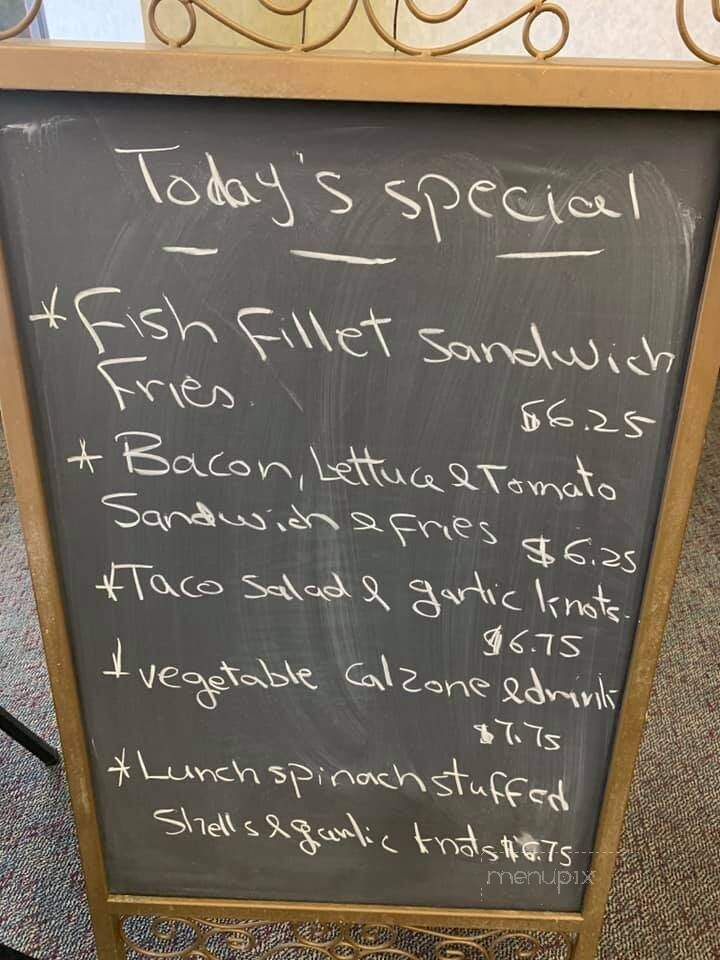 Today's special
* Fish Fillet Sandwich
Fries. $6.25
* Bacon, Lettuce & Tomato
Sandwich & Fries $6.25
* Taco Salad & garlic knots.
$6.75
* vegetable Calzone & drink
$7.75
* Lunch spinach stuffed
Shells & garlic knots $6.75
menupix